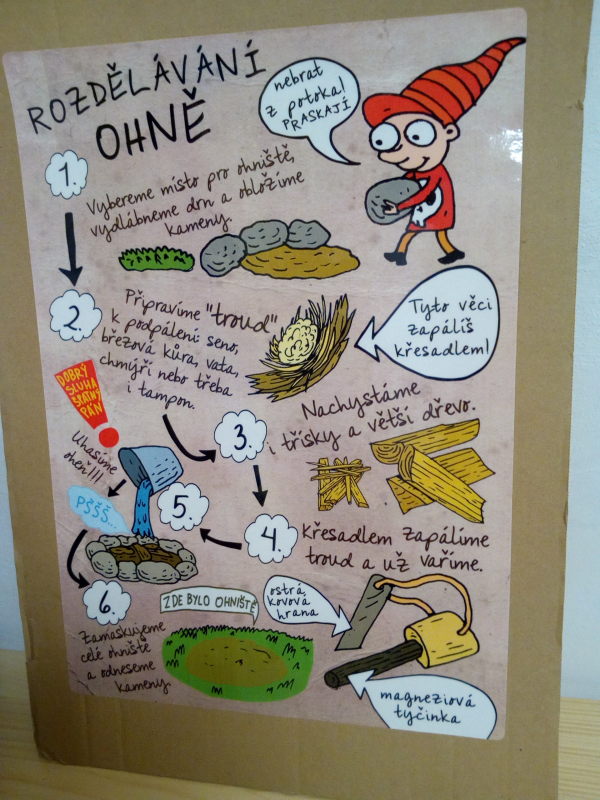 ROZDĚLÁVÁNÍ
OHNĚ
nebrat
z potoka!
PRASKAJÍ
1.
Vybereme místo pro ohniště,
vydlábneme drn a obložíme
kameny.
2.
Připravíme "troud"
k podpálení seno,
březová kůra, vata,
chmýří nebo třeba
i tampon.
Tyto věci
zapálíš
křesadlem!
DOBRÝ
SLUHA
ŠPATNÝ
PÁN
3.
Nachystáme
i třísky a větší dřevo.
4.
Křesadlem zapálíme
troud a už vaříme.
5.
Uhasíme
oheň!!!
PŠŠŠ...
6.
Zamaskujeme
celé ohniště
a odneseme
kameny.
ZDE BYLO OHNIŠTĚ
ostrá,
kovová
hrana
magneziová
tyčinka